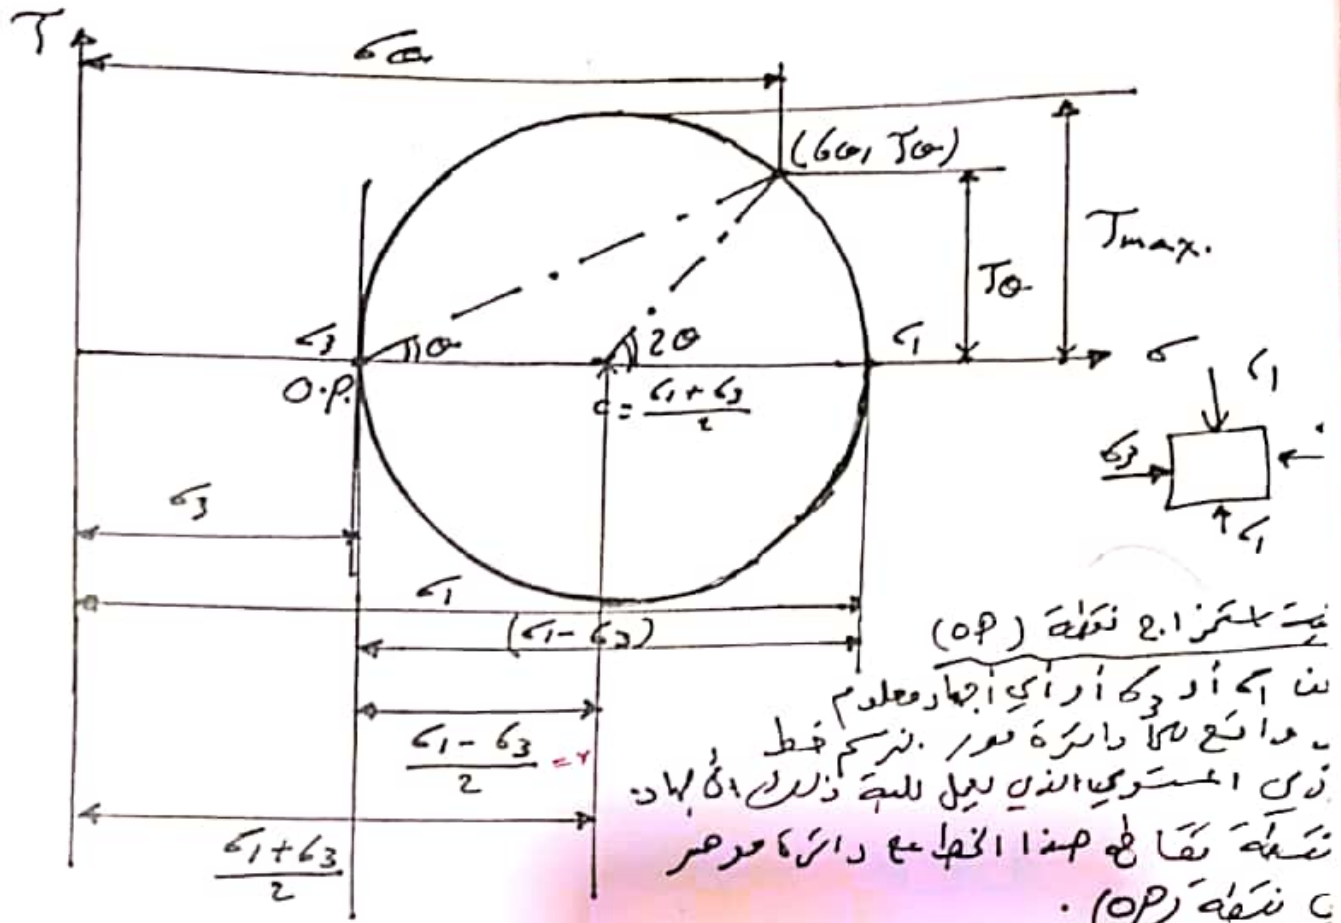 τ
σθ
(σθ, τθ)
τmax.
τθ
σ3
θ
2θ
σ1
σ
O.P.
c = σ1 + σ3 / 2
σ1
σ3
σ1
σ3
σ1
(σ1 - σ3)
σ1 - σ3 / 2 = r
σ1 + σ3 / 2
استخراج نقطة (OP)
σ1 أو σ3 أو أي أجهاد معلوم
واقع على دائرة مور . نرسم خط
المستوي الذي يعمل عليه ذلك الأجهاد.
نقطة تقاطع هذا الخط مع دائرة موهر
نقطة (OP) .